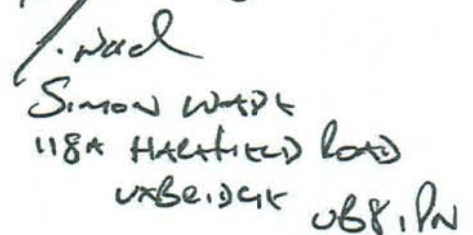 S. Wade
SIMON WADE
118A HAREFIELD ROAD
UXBRIDGE UB8 1PN